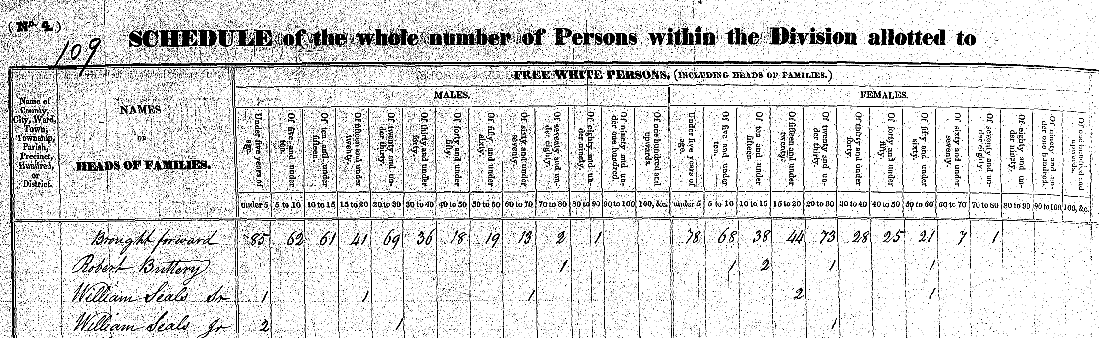 (No. 4.)
109
SCHEDULE of the whole number of Persons within the Division allotted to
FREE WHITE PERSONS, (INCLUDING HEADS OF FAMILIES.)
MALES. FEMALES.
Name of County, City, Ward, Town, Township, Parish, Precinct, Hundred, or District.
NAMES
OF
HEADS OF FAMILIES.
Under five years of age. Of five and under ten. Of ten and under fifteen. Of fifteen and under twenty. Of twenty and under thirty. Of thirty and under forty. Of forty and under fifty. Of fifty and under sixty. Of sixty and under seventy. Of seventy and under eighty. Of eighty and under ninety. Of ninety and under one hundred. Of one hundred and upwards. Under five years of age. Of five and under ten. Of ten and under fifteen. Of fifteen and under twenty. Of twenty and under thirty. Of thirty and under forty. Of forty and under fifty. Of fifty and under sixty. Of sixty and under seventy. Of seventy and under eighty. Of eighty and under ninety. Of ninety and under one hundred. Of one hundred and upwards.
under 5 5 to 10 10 to 15 15 to 20 20 to 30 30 to 40 40 to 50 50 to 60 60 to 70 70 to 80 80 to 90 90 to 100 100, &c. under 5 5 to 10 10 to 15 15 to 20 20 to 30 30 to 40 40 to 50 50 to 60 60 to 70 70 to 80 80 to 90 90 to 100 100, &c.
Brought forward 85 62 61 41 69 36 18 19 13 2 1 78 68 38 44 73 28 25 21 7 1
Robert Buttery 1 1 2 1 1
William Seals Sr 1 1 1 2 1
William Seals Jr 2 1 1